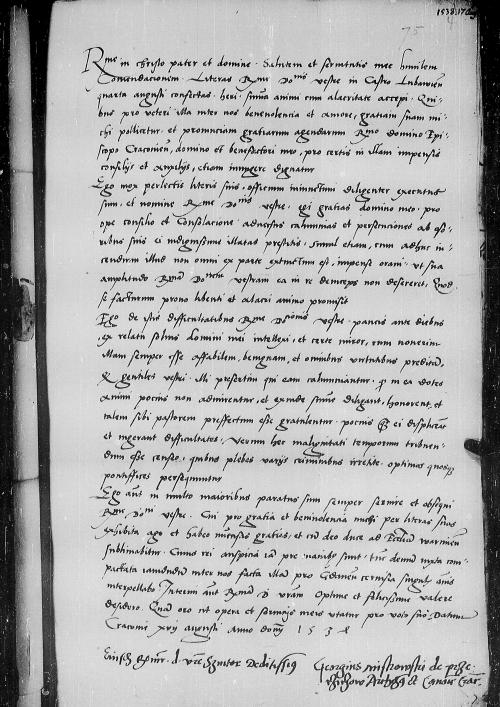 1538.17 Aug
75
Rme in christo pater et domine. Salutem et servitutis mee humilem
Comendacionem. Literas Rme Donis vestre in Castro Lubawien
quarta augusti confectas heri summa animi cum alacritate accepi. Qui-
bus pro veteri illa inter nos benevolencia et amore, gratiam suam mi-
chi pollicetur et provinciam gratiarum agendarum Rmo domino Epi-
scopo Cracovien, domino et benefactori meo, pro certis in illam impensis
consilijs et auxilijs, etiam iniungere dignatur
Ego mox perlectis literis suis, officium iniunctum diligenter executus
sum, et nomine Rme Donis vestre egi gratias domino meo pro
ope consilio et Consolacione adversus calumnias et persecuciones ab
suis ei indignissime illatas prestitis, simul etiam, cum adhuc in-
cendium illud non omni ex parte extinctum est, impense oravi ut sua
amplitudo Rmam Donem vestram ea in re deinceps non desereret. Quod
se facturum prono libenti et alacri animo promisit
Ego de istis difficultatibus Rme Donis vestre paucis ante diebus
ex relatu solius domini mei intellexi, et certe miror, cum noverim
illam semper esse affabilem, benignam, et omnibus virtutibus preditam,
gentiles vestri illi presertim qui eam calumniantur, in ea dotes
animi pocius non admirentur, et eximie summe diligant, honorent, et
talem sibi pastorem prefectum esse gratulentur pocius ei displiceant
et ingerant difficultates. Verum hec malignitati temporum tribuen-
dum esse censeo, quibus plebes varijs criminibus irretite optimos quosque
pontifices persequuntur
Ego autem in multo maioribus paratus sum semper servire et obsequi
Rme Doni vestre. Cui pro gratia et benivolencia michi per literas suas
exhibita ago et habeo immensas gratias, et cum deo duce ad Ecclesiam warmien
sublimabitur. Cuius rei auspicia iam pre manibus sunt, tunc demum iuxta com-
pactata iamdudum inter nos facta illam pro Gedanen cervisia singulis annis
interpellabo. Interim autem Rmam D. vram Optime et felicissime valere
desidero. Quam oro ut opera et servicijs meis utatur pro voto suo. Datum
Cracovie xvij augusti Anno domini 1538
Eiusdem Rme. d. vre Servitor Deditissimus
Georgius miskowski de prze-
Archi et Canonicus Crac.